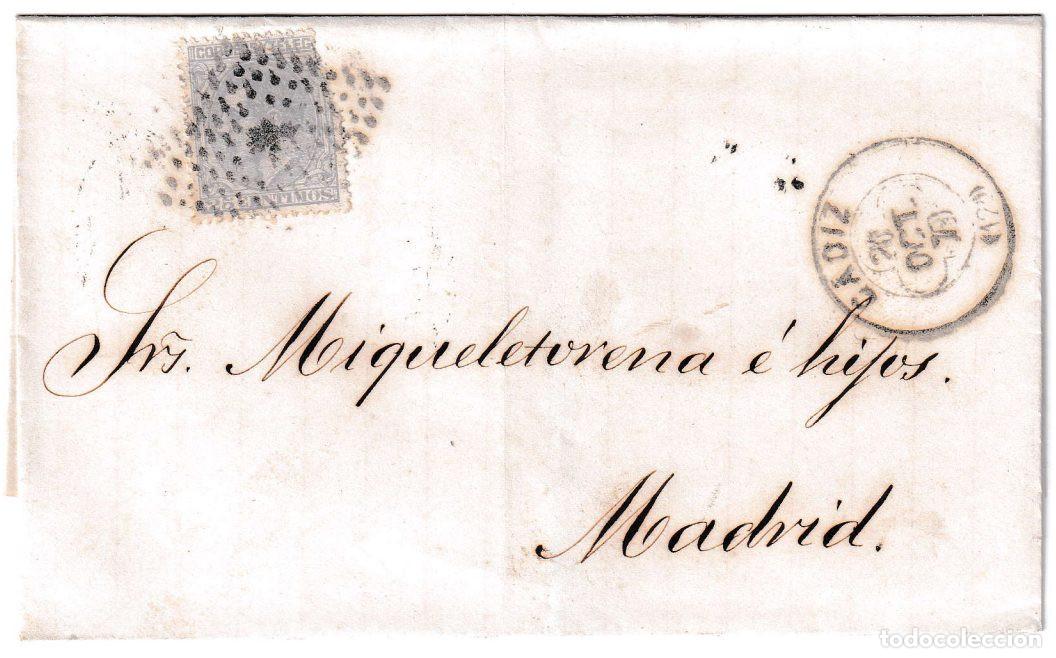 25 CENTIMOS
CADIZ
OCT
Srs. Miqueletorena é hijos.
Madrid.
todocoleccion